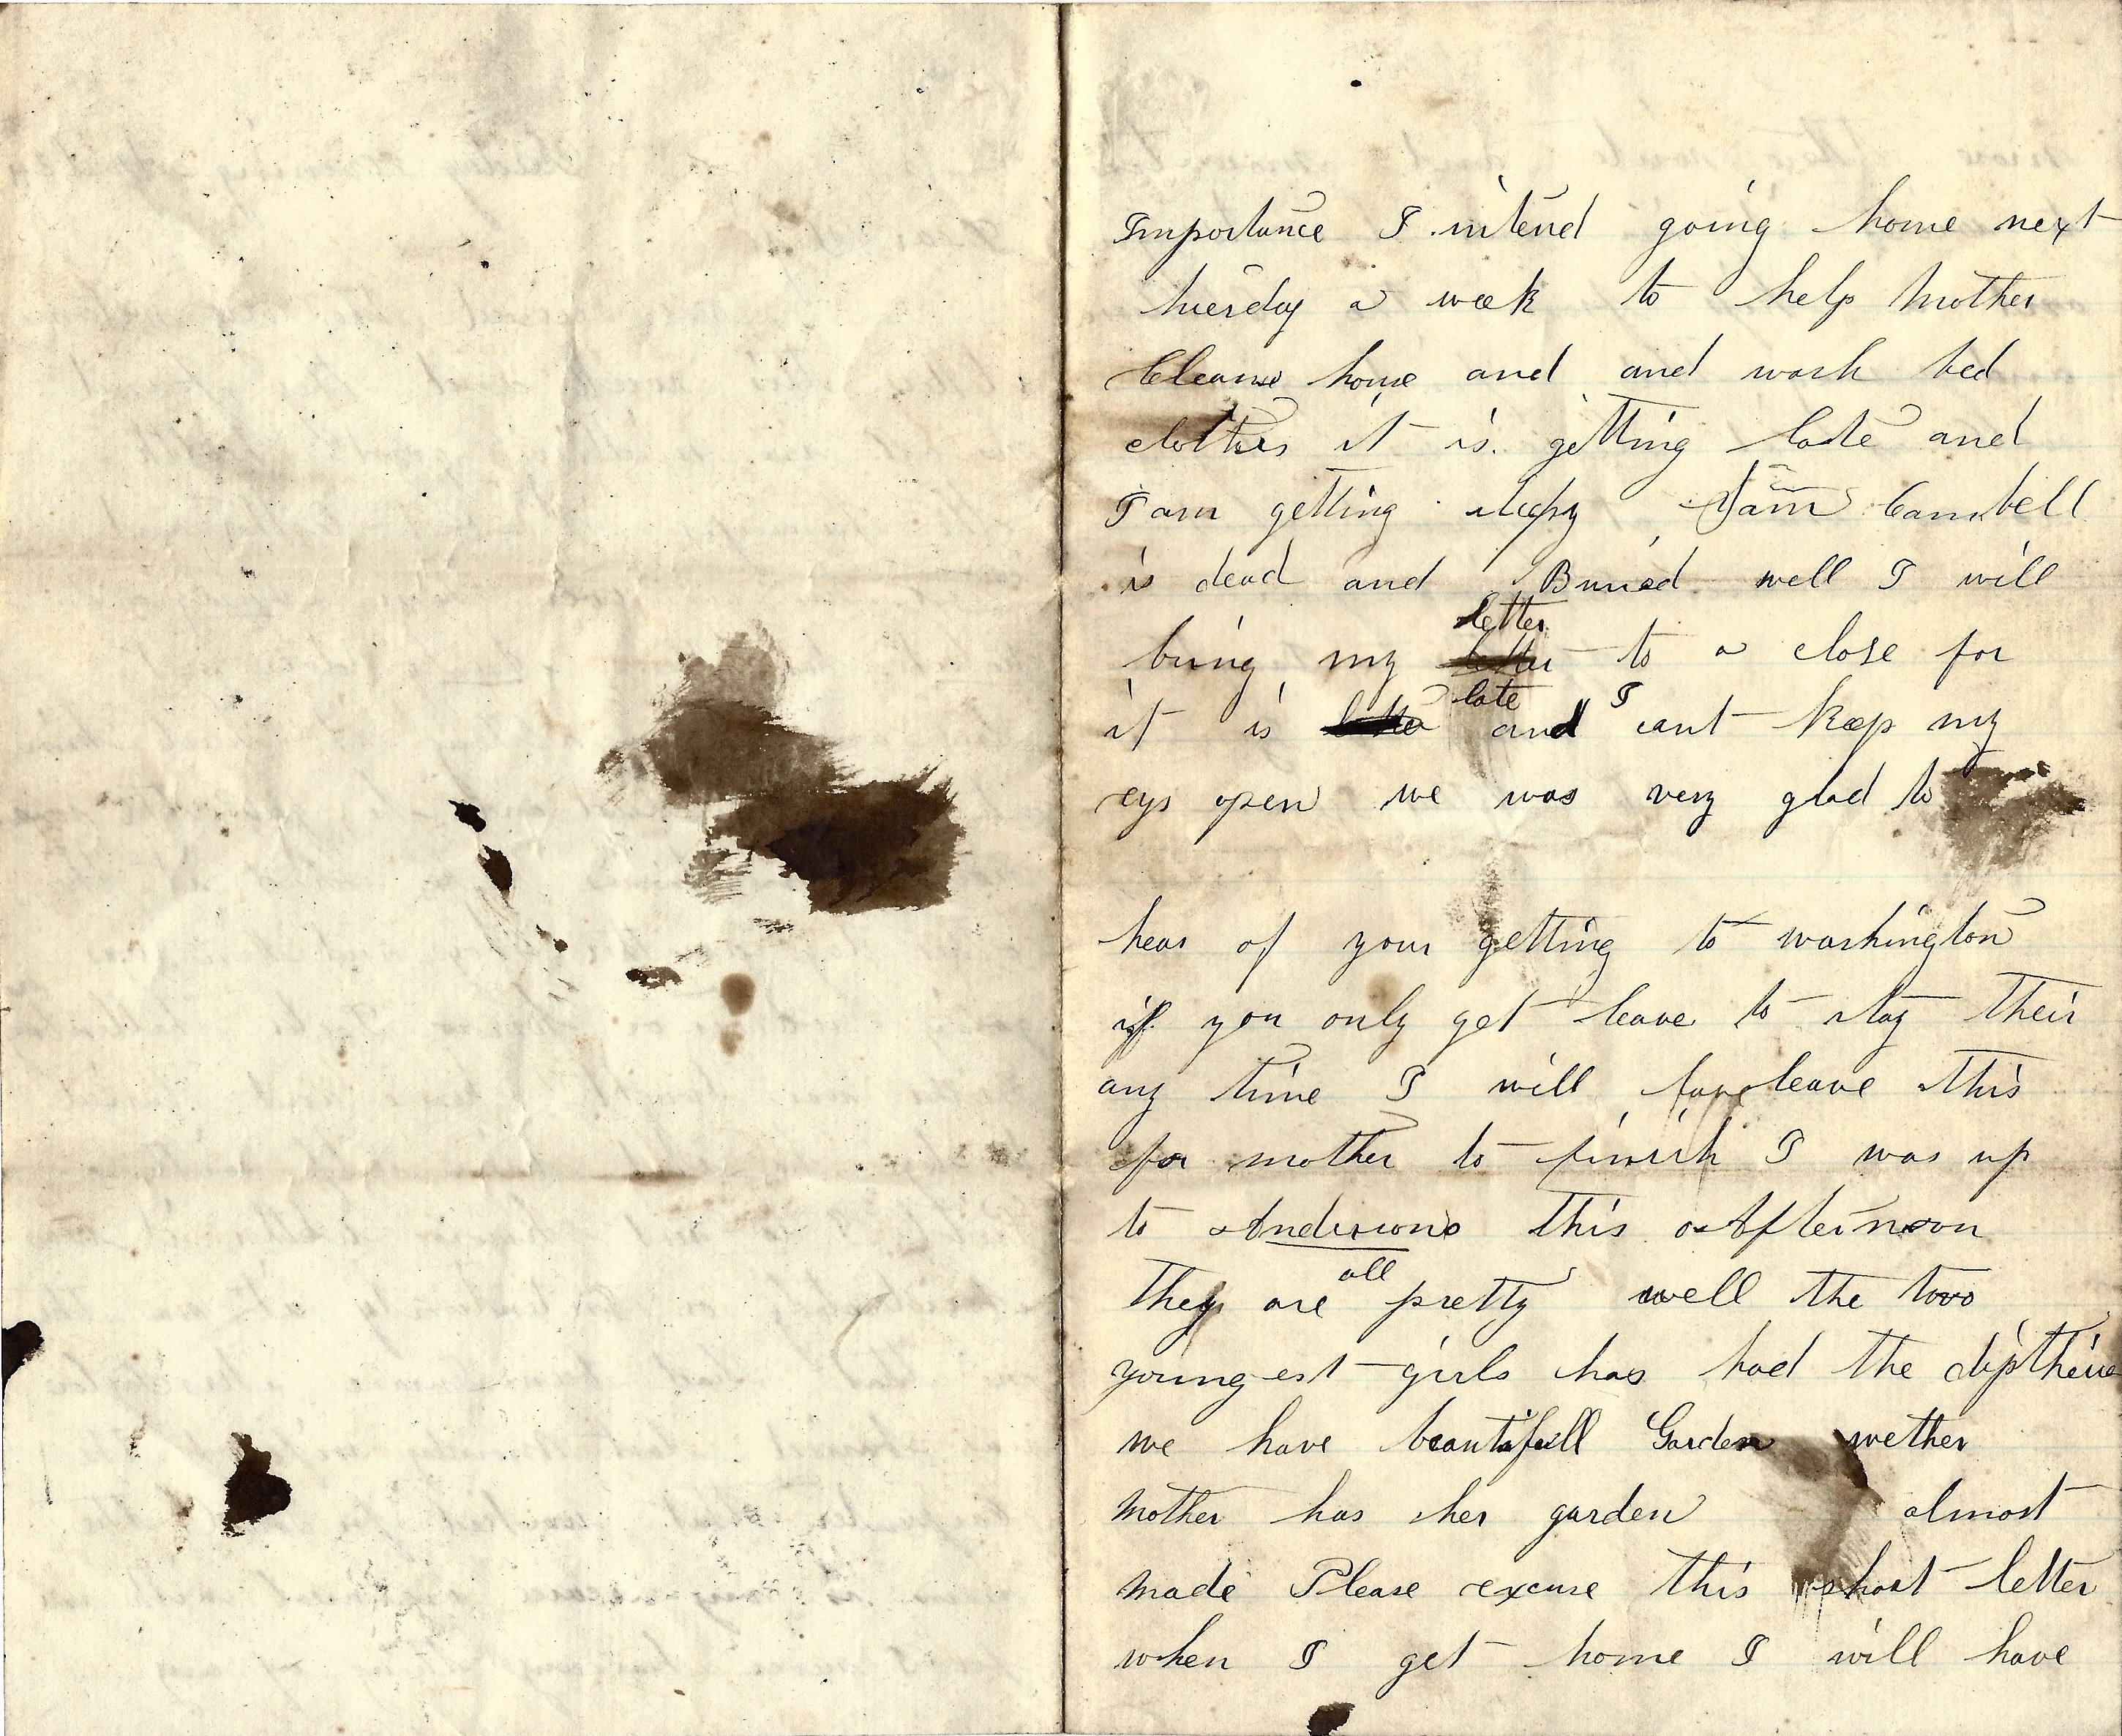 Importance I intend going home next
tuesday a week to help Mother
Cleanse house and and wash bed
clothes it is getting late and
I am getting sleepy Sam Cambell
is dead and Buried well I will
letter
bring my letter to a close for
late I
it is and cant keep my
eys open we was very glad to
hear of your getting to washington
if you only get leave to stay their
any time I will leave this
for mother to finish I was up
to Andersons this Afternoon
all
They are pretty well the two
youngest girls has had the diptheria
we have beautifull Garden wether
Mother has her garden almost
made Please excuse this short letter
when I get home I will have